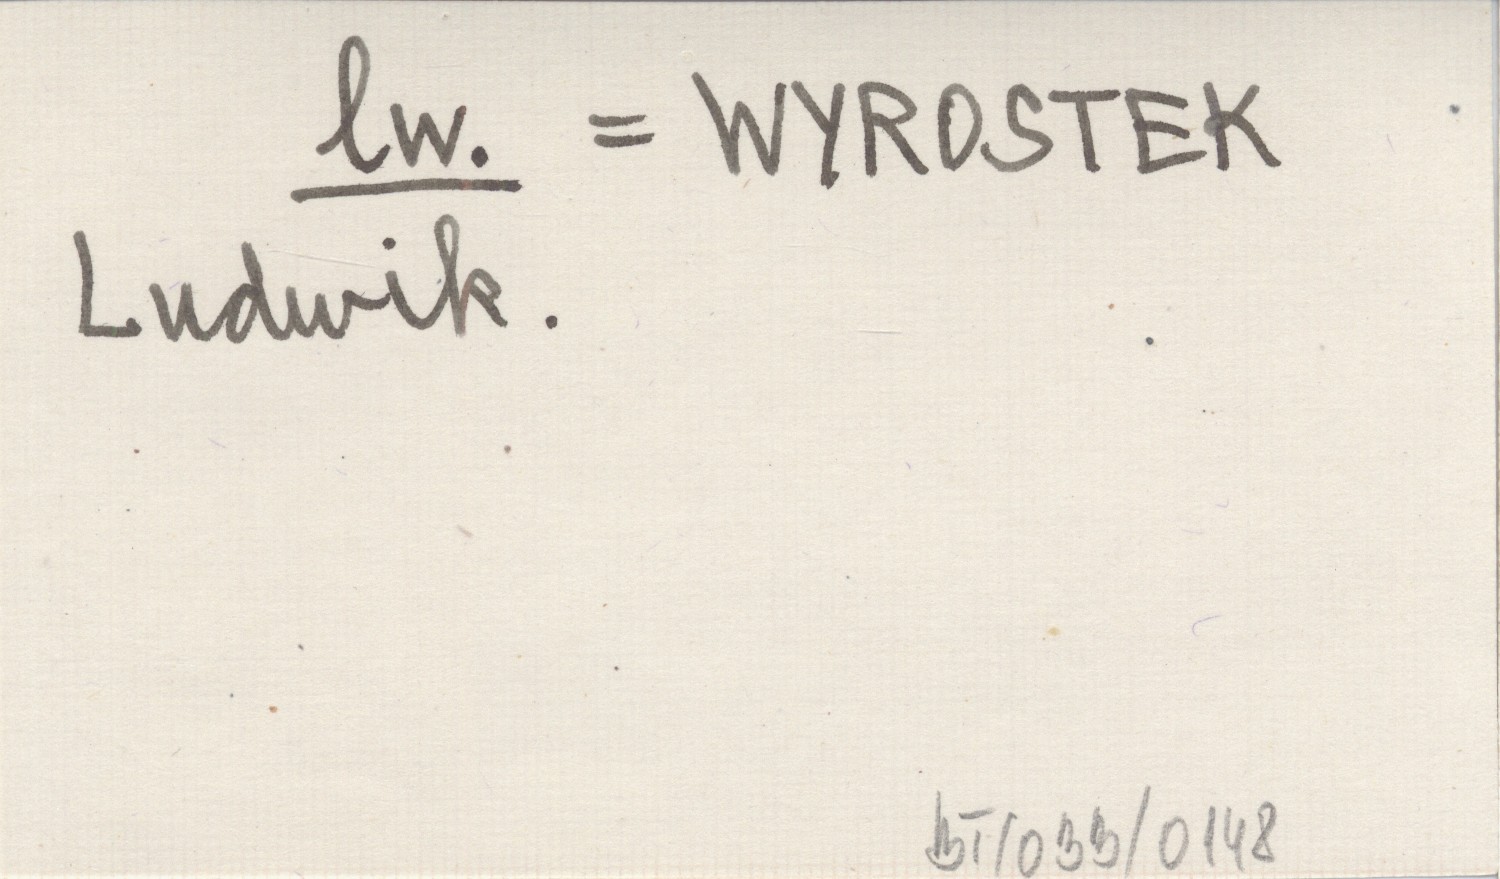 lw. = WYROSTEK
Ludwik.
BT/OBB/0148